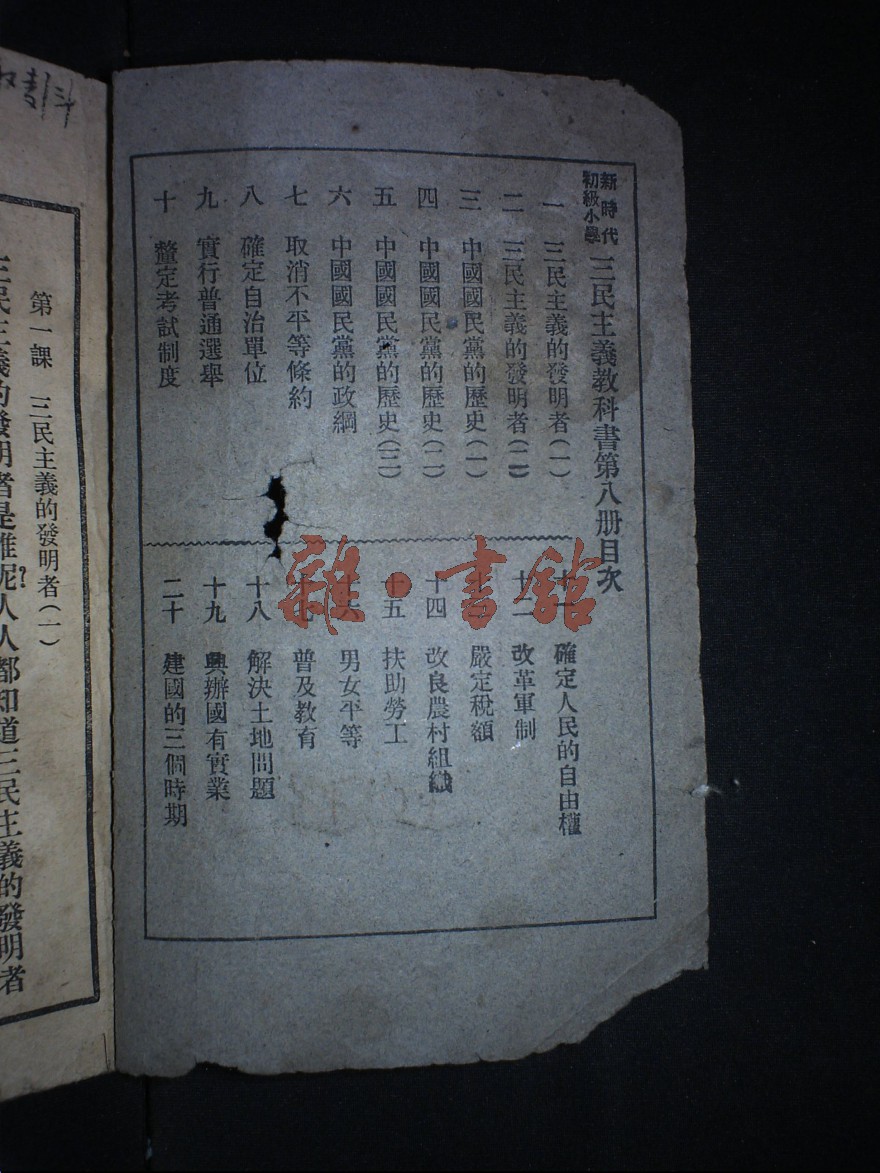 新時代
初級小學
三民主義教科書第八册目次
一 三民主義的發明者(一)
二 三民主義的發明者(二)
三 中國國民黨的歷史(一)
四 中國國民黨的歷史(二)
五 中國國民黨的歷史(三)
六 中國國民黨的政綱
七 取消不平等條約
八 確定自治單位
九 實行普通選舉
十 釐定考試制度
十一 確定人民的自由權
十二 改革軍制
十三 嚴定稅額
十四 改良農村組織
十五 扶助勞工
十六 男女平等
十七 普及教育
十八 解決土地問題
十九 興辦國有實業
二十 建國的三個時期
雜·書館
第一課 三民主義的發明者(一)
三民主義的發明者是誰呢?人人都知道三民主義的發明者